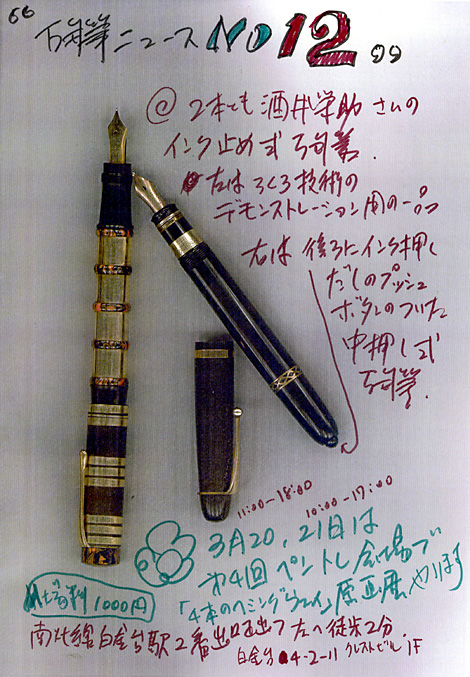 66
万年筆ニュース NO 12
◎ 2本とも 酒井栄助 さんの
インク止め式 万年筆.
右はろくろ技術の
デモンストレーション用の一品
右は 後ろにインク押し
だしのプッシュ
ボタンのついた
中押し式
万年筆.
11:00-18:00 10:00-17:00
3月20, 21日は
第4回 ペントレ会場で
「4本のヘミングウェイ」原画展 やります
入場料 1000円
南北線 白金台駅 2番出口を出て 左へ徒歩2分.
白金台 4-2-11 クレストビル 1F